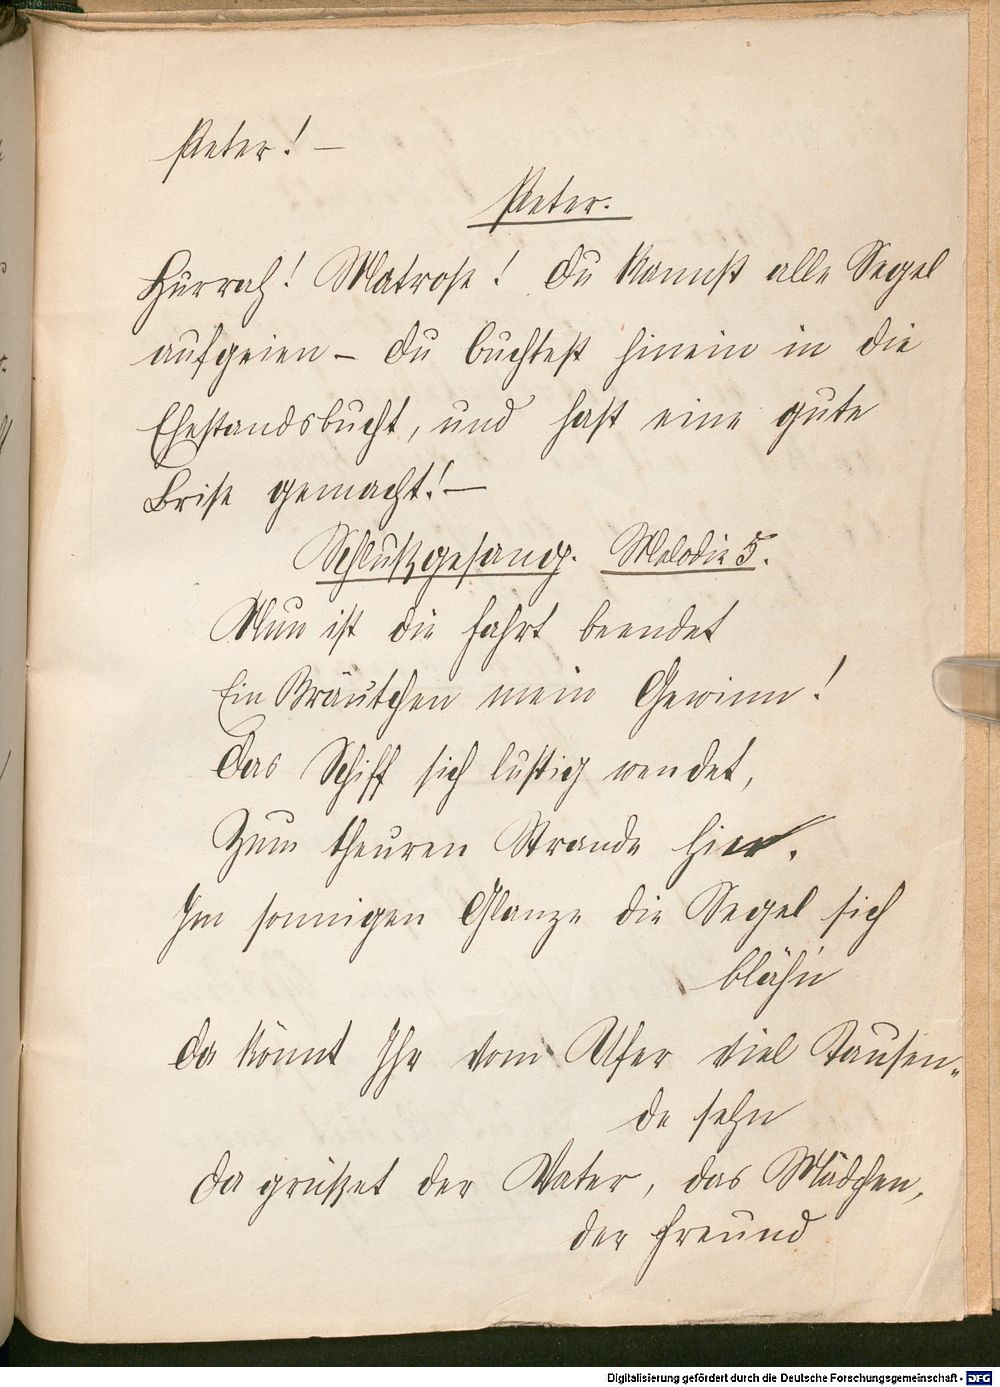 Peter! —
Peter.
Hurrah! Matrose! Du kannst alle Segel
aufgeien – Du buchtest hinein in die
Ehestandsbucht, und hast eine gute
Brise gemacht! —
Schlußgesang. Melodie 5.
Nun ist die Fahrt beendet
Ein Bräutchen mein Gewinn!
Das Schiff sich lustig wendet,
Zum theuren Strande hin.
Im sonnigen Glanze die Segel sich
bläh'n
Da könnt Ihr vom Ufer viel Tausen-
de sehn
Da grüßet der Vater, das Mädchen,
der Freund
Digitalisierung gefördert durch die Deutsche Forschungsgemeinschaft - DFG